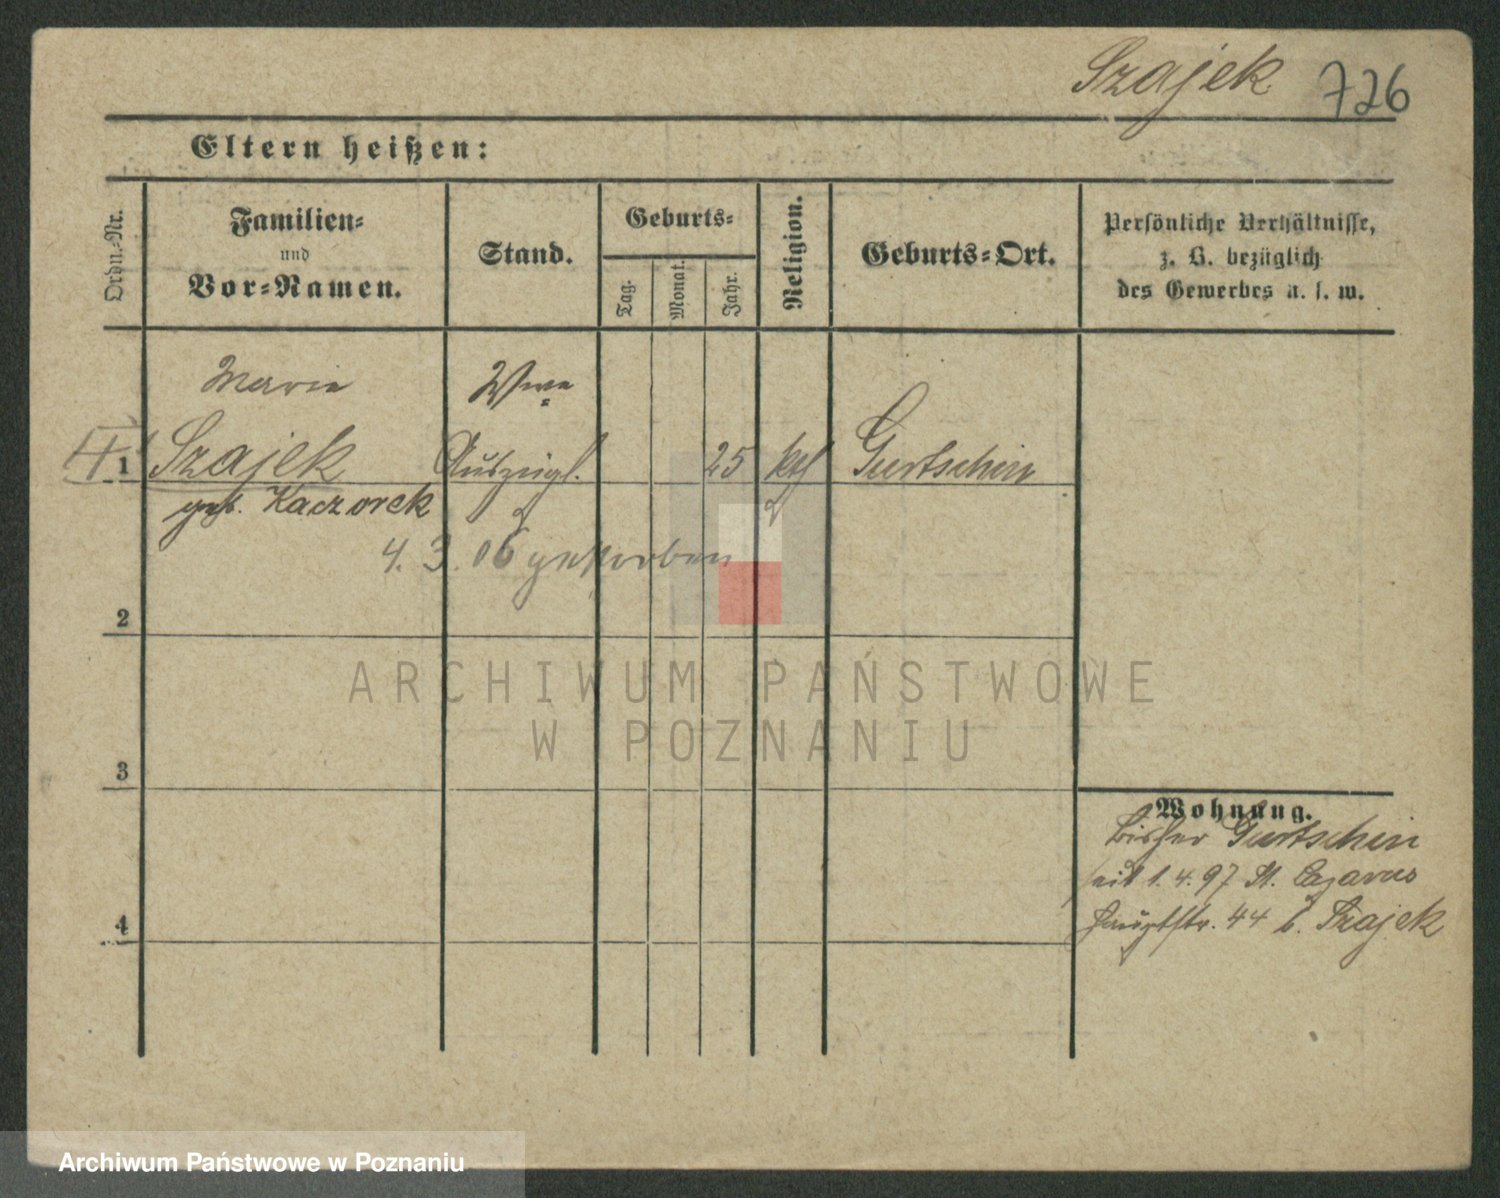 Szajek 726
Eltern heißen:
Ordn.-Nr.
Familien-
und
Vor-Namen.
Stand.
Geburts-
Tag.
Monat.
Jahr.
Religion.
Geburts-Ort.
Persönliche Verhältnisse,
z. B. bezüglich
des Gewerbes u. s. w.
Marie Wwe
1 Szajek Auszügl. 25 kth Gurtschin
geb. Kaczorek
4. 3. 06 gestorben
2
3
4
Wohnung.
bisher Gurtschin
seit 1. 4. 97 St. Lazarus
Hauptstr. 44 b. Szajek
ARCHIWUM PAŃSTWOWE
W POZNANIU
Archiwum Państwowe w Poznaniu